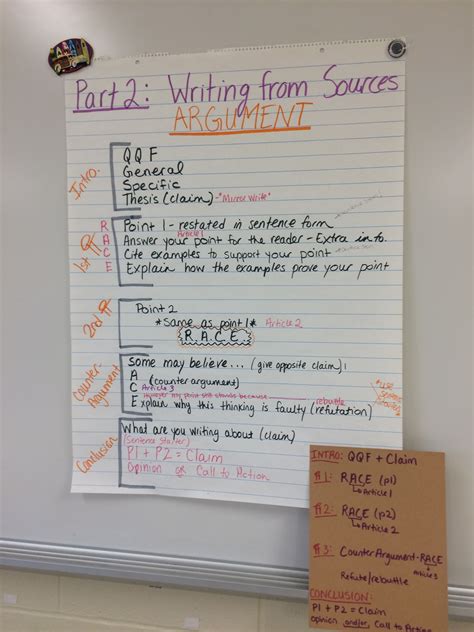 Part 2: Writing from Sources
ARGUMENT
Intro.
QQF
General
Specific
Thesis (claim) - *"Mirror Write"
1st ¶
R Point 1 - restated in sentence form
Article 1
A Answer your point for the reader - Extra info.
C Cite examples to support your point
E Explain how the examples prove your point
2nd ¶
Point 2
*Same as point 1* Article 2
R.A.C.E.
Counter-Argument
Some may believe... (give opposite claim)
A (counter argument)
C Article 3
However my point still stands because rebuttle
E Explain why this thinking is faulty (refutation)
Conclusion
What are you writing about (claim)
(Sentence Starter)
P1 + P2 = Claim
Opinion or Call to Action
INTRO: QQF + Claim
¶1: RACE (p1)
Article 1
¶2: RACE (p2)
Article 2
¶3: Counter Argument - RACE
Article 3
Refute/rebuttle
CONCLUSION:
P1 + P2 = Claim
opinion and/or Call to Action